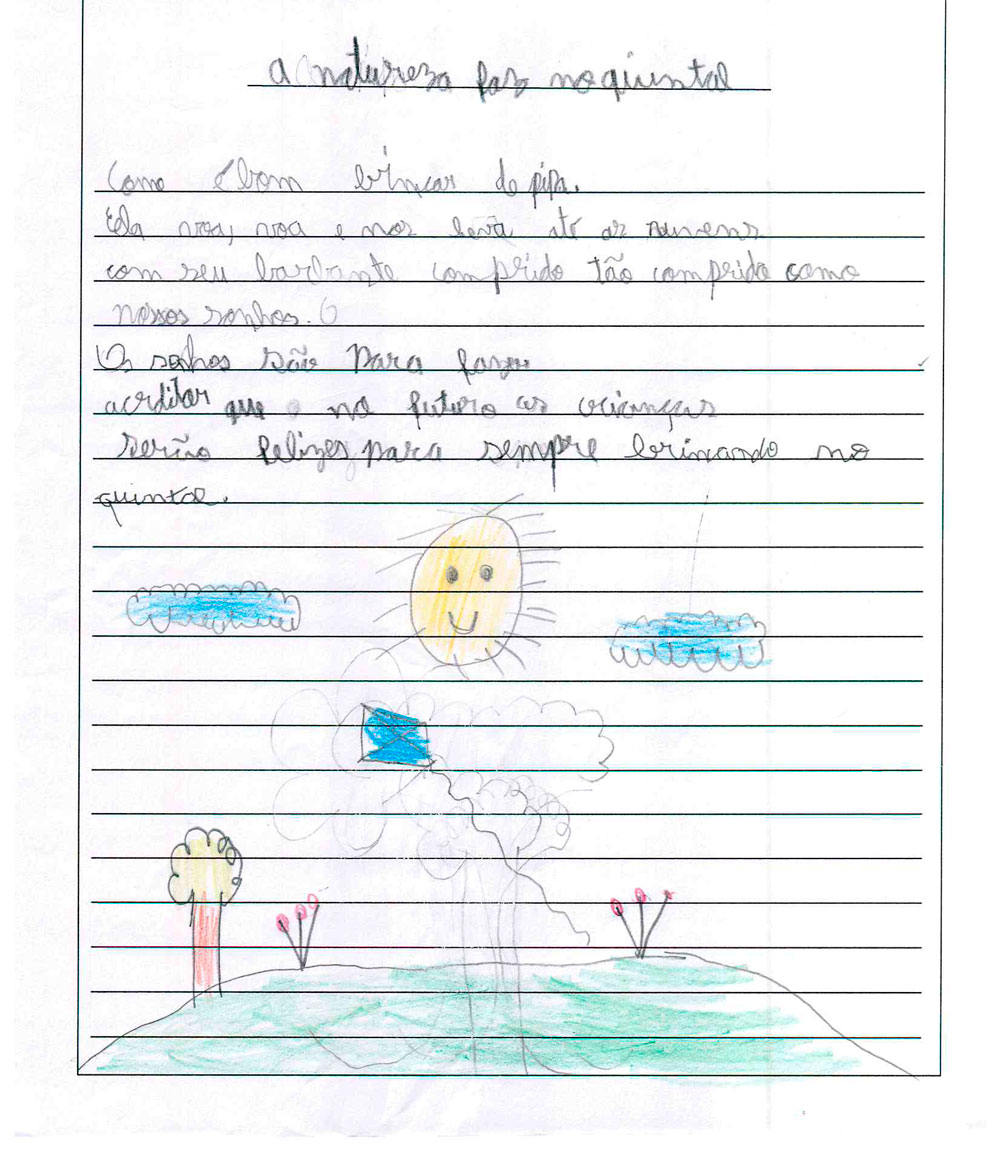 a natureza faz no quintal
Como é bom brincar de pipa.
Ela voa, voa e nos leva até as nuvens
com seu barbante comprido tão comprido como
nossos sonhos.
Os sonhos são para fazer
acrditar que no futuro as crianças
serão felizes para sempre brinando no
quintal.